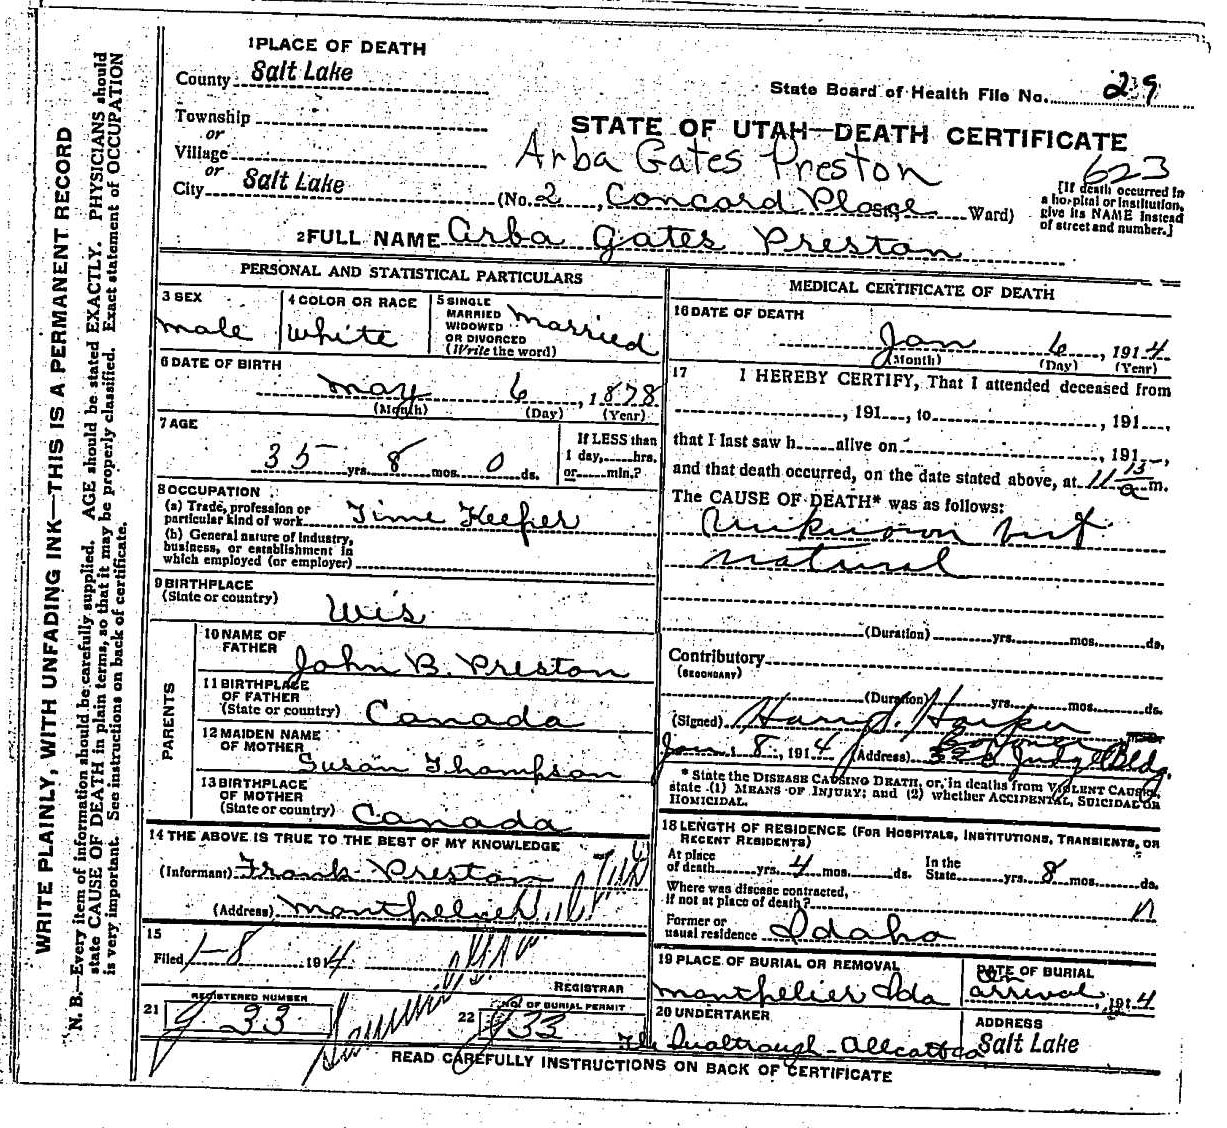 WRITE PLAINLY, WITH UNFADING INK—THIS IS A PERMANENT RECORD
N. B.—Every item of information should be carefully supplied. AGE should be stated EXACTLY. PHYSICIANS should
state CAUSE OF DEATH in plain terms, so that it may be properly classified. Exact statement of OCCUPATION
is very important. See instructions on back of certificate.
1 PLACE OF DEATH
County Salt Lake
State Board of Health File No. 29
Township
or
Village
or
City Salt Lake
STATE OF UTAH—DEATH CERTIFICATE
Arba Gates Preston
623
(No. 2, Concord Place Ward)
[If death occurred in
a hospital or institution,
give its NAME instead
of street and number.]
2 FULL NAME Arba Gates Preston
PERSONAL AND STATISTICAL PARTICULARS
3 SEX
male
4 COLOR OR RACE
white
5 SINGLE
MARRIED
WIDOWED
OR DIVORCED
(Write the word)
married
6 DATE OF BIRTH
May 6, 1878
(Month) (Day) (Year)
7 AGE
35 yrs. 8 mos. 0 ds.
If LESS than
1 day, hrs.
or min.?
8 OCCUPATION
(a) Trade, profession or
particular kind of work Time Keeper
(b) General nature of Industry,
business, or establishment in
which employed (or employer)
9 BIRTHPLACE
(State or country)
Wis
PARENTS
10 NAME OF
FATHER
John B. Preston
11 BIRTHPLACE
OF FATHER
(State or country) Canada
12 MAIDEN NAME
OF MOTHER
Susan Thompson
13 BIRTHPLACE
OF MOTHER
(State or country) Canada
14 THE ABOVE IS TRUE TO THE BEST OF MY KNOWLEDGE
(Informant) Frank Preston
(Address) Montpelier
15
Filed 1-8 1914
REGISTRAR
21 REGISTERED NUMBER
33
22 NO. OF BURIAL PERMIT
33
MEDICAL CERTIFICATE OF DEATH
16 DATE OF DEATH
Jan 6, 1914
(Month) (Day) (Year)
17 I HEREBY CERTIFY, That I attended deceased from
, 191 , to , 191 ,
that I last saw h alive on , 191 ,
and that death occurred, on the date stated above, at 11 15 a m.
The CAUSE OF DEATH* was as follows:
Unknown but
natural
(Duration) yrs. mos. ds.
Contributory
(SECONDARY)
(Duration) yrs. mos. ds.
(Signed) Harry S. Harper
Coroner
Jan. 8, 1914 (Address) 320 Judge Bldg.
* State the DISEASE CAUSING DEATH, or, in deaths from VIOLENT CAUSES,
state (1) MEANS OF INJURY; and (2) whether ACCIDENTAL, SUICIDAL OR
HOMICIDAL.
18 LENGTH OF RESIDENCE (FOR HOSPITALS, INSTITUTIONS, TRANSIENTS, OR
RECENT RESIDENTS)
At place
of death yrs. 4 mos. ds.
In the
State yrs. 8 mos. ds.
Where was disease contracted,
if not at place of death?
Former or
usual residence Idaho
19 PLACE OF BURIAL OR REMOVAL
Montpelier Ida
DATE OF BURIAL
on
arrival, 1914
20 UNDERTAKER
ADDRESS
Salt Lake
READ CAREFULLY INSTRUCTIONS ON BACK OF CERTIFICATE